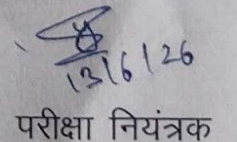 13/6/26
परीक्षा नियंत्रक